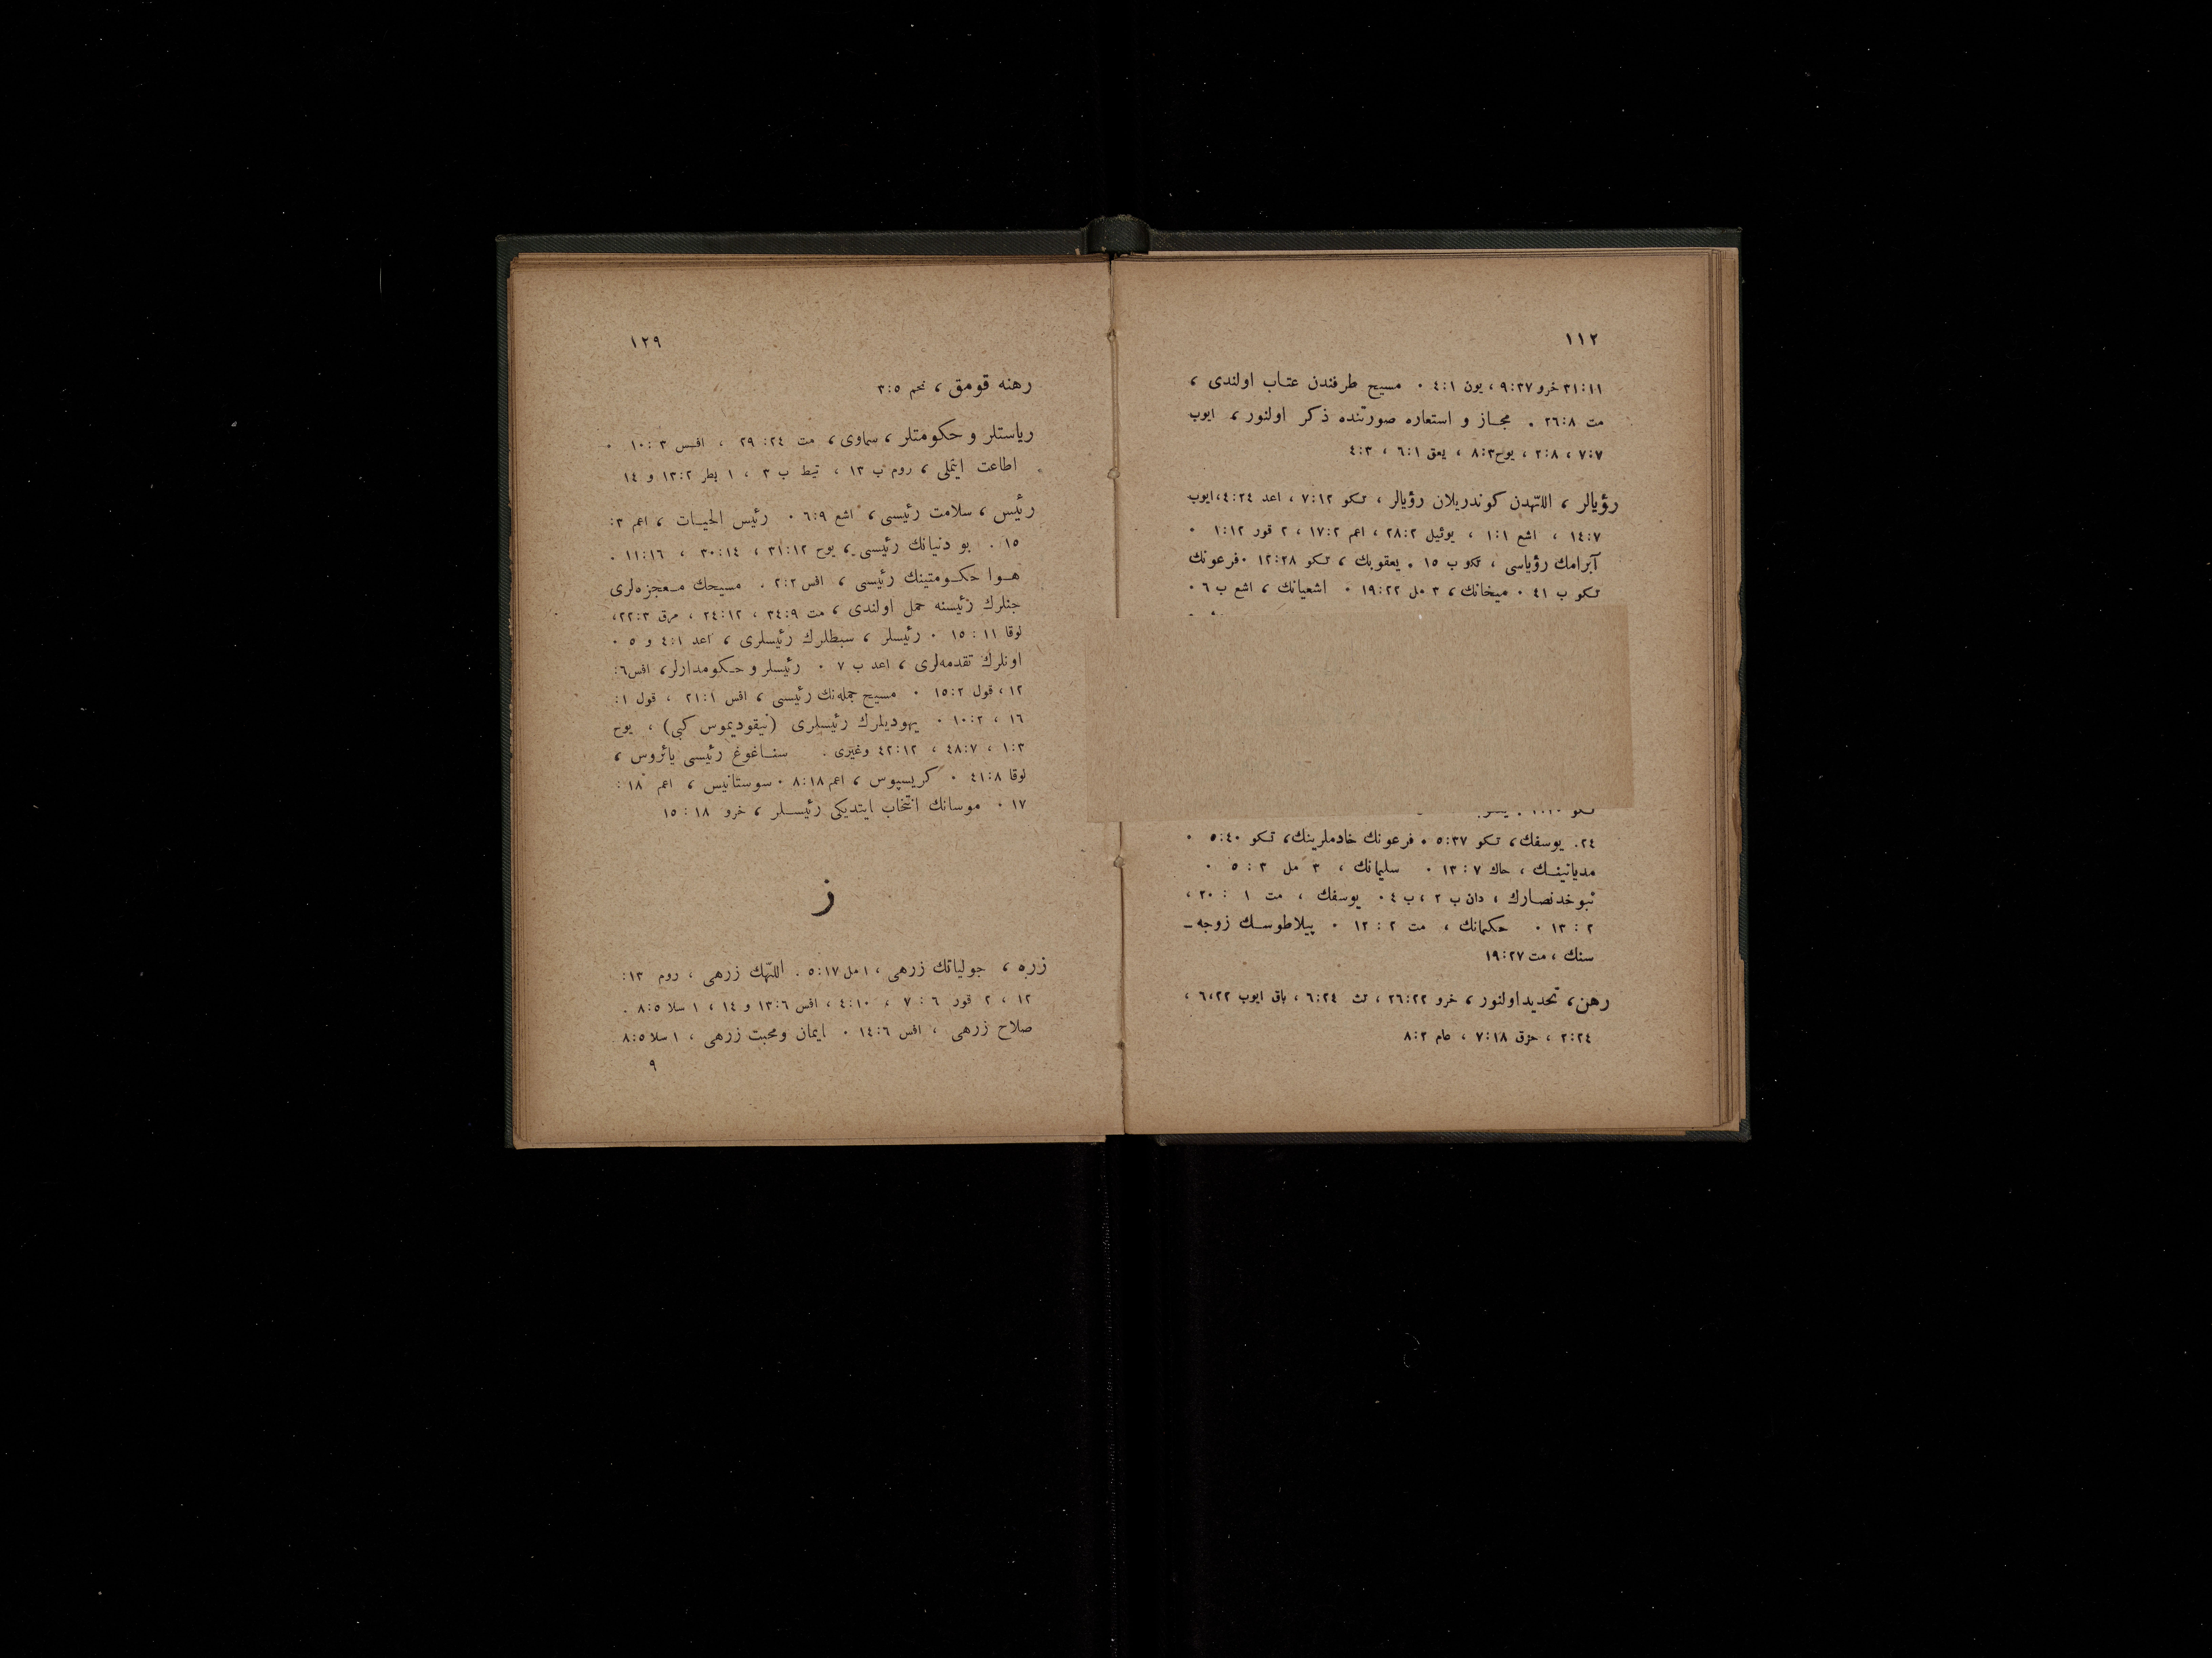 ١١٢
٣١:١١ خرو ٩:٣٧ ، يون ٤:١ . مسيح طرفندن عتاب اولندى ،
مت ٢٦:٨ . مجاز و استعاره صورتنده ذكر اولنور ، ايوب
٧:٧ ، ٢:٨ ، يوح ٨:٣ ، يعق ٦:١ ، ٤:٣
رؤيالر ، اللّٰهدن كوندريلان رؤيالر ، تكو ٧:١٢ ، اعد ٤:٢٤ ، ايوب
١٤:٧ ، اشع ١:١ ، يوئيل ٢٨:٢ ، اعم ١٧:٢ ، ٢ قور ١:١٢ .
آبرامك رؤياسى ، تكو ب ١٥ . يعقوبك ، تكو ١٢:٢٨ . فرعونك
تكو ب ٤١ . ميخانك ، ٣ مل ١٩:٢٢ . اشعيانك ، اشع ب ٦ .
٢٤ . يوسفك ، تكو ٥:٣٧ . فرعونك خادملرينك ، تكو ٥:٤٠ .
مديانينك ، حاك ١٣:٧ . سليمانك ، ٣ مل ٥:٣ .
نبوخدنصارك ، دان ب ٢ ، ب ٤ . يوسفك ، مت ١ : ٢٠ ،
٢ : ١٣ . حكمانك ، مت ٢ : ١٢ . پيلاطوسك زوجه‌ـ
سنك ، مت ١٩:٢٧
رهن ، تحديد اولنور ، خرو ٢٦:٢٢ ، تث ٦:٢٤ ، باق ايوب ٦،٢٢ ،
٣:٢٤ ، حزق ٧:١٨ ، عام ٨:٢
١٢٩
رهنه قومق ، نحم ٣:٥
رياستلر و حكومتلر ، سماوى ، مت ٢٤ : ٢٩ ، افس ٣ : ١٠ .
اطاعت ايتملى ، روم ب ١٣ ، تيط ب ٣ ، ١ بطر ١٣:٢ و ١٤
رئيس ، سلامت رئيسى ، اشع ٦:٩ . رئيس الحيات ، اعم ٣:
١٥ . بو دنيانك رئيسى ، يوح ٣١:١٢ ، ٣٠:١٤ ، ١١:١٦ .
هوا حكومتينك رئيسى ، افس ٢:٢ . مسيحك معجزه‌لرى
جنلرك رئيسنه حمل اولندى ، مت ٣٤:٩ ، ٢٤:١٢ ، مرق ٢٢:٣ ،
لوقا ١١ : ١٥ . رئيسلر ، سبطلرك رئيسلرى ، اعد ٤:١ و ٥ .
اونلرك تقدمه‌لرى ، اعد ب ٧ . رئيسلر و حكومدارلر ، افس ٦:
١٢ ، قول ١٥:٢ . مسيح جمله‌نك رئيسى ، افس ٢١:١ ، قول ١:
١٦ ، ١٠:٢ . يهوديلرك رئيسلرى (نيقوديموس كبى) ، يوح
١:٣ ، ٤٨:٧ ، ٤٢:١٢ وغيرى . سناغوغ رئيسى يائروس ،
لوقا ٤١:٨ . كريسپوس ، اعم ٨:١٨ . سوستانيس ، اعم ١٨ :
١٧ . موسانك انتخاب ايتديكى رئيسلر ، خرو ١٨ : ١٥
ز
زره ، جولياتك زرهى ، ١ مل ٥:١٧ . اللّٰهك زرهى ، روم ١٣:
١٢ ، ٢ قور ٦ : ٧ ، ٤:١٠ ، افس ١٣:٦ و ١٤ ، ١ سلا ٨:٥ .
صلاح زرهى ، افس ١٤:٦ . ايمان ومحبت زرهى ، ١ سلا ٨:٥
٩